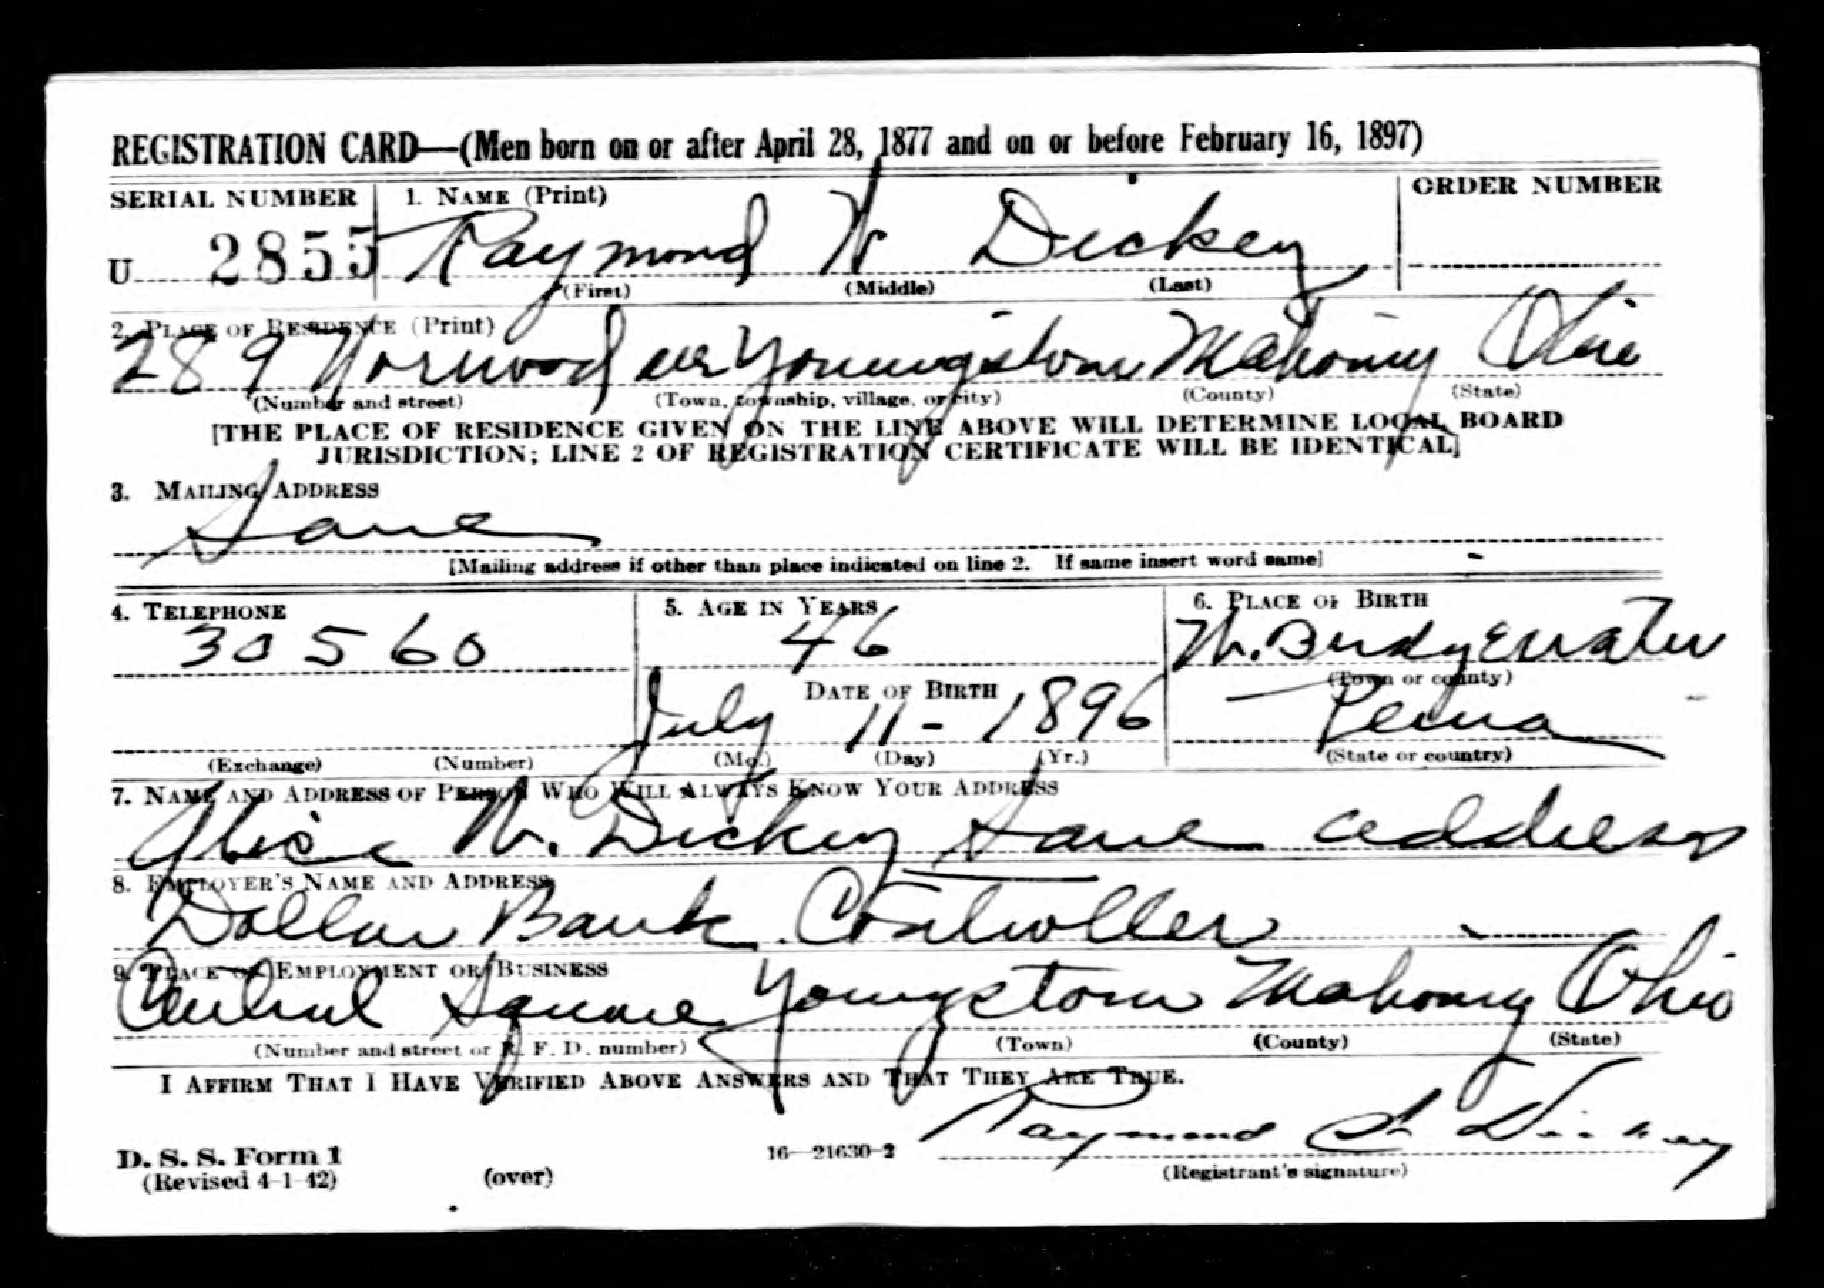 REGISTRATION CARD—(Men born on or after April 28, 1877 and on or before February 16, 1897)
SERIAL NUMBER 1. NAME (Print) ORDER NUMBER
U 2855 Raymond H Dickey
(First) (Middle) (Last)
2. PLACE OF RESIDENCE (Print)
289 Norwood ave Youngstown Mahoning Ohio
(Number and street) (Town, township, village, or city) (County) (State)
[THE PLACE OF RESIDENCE GIVEN ON THE LINE ABOVE WILL DETERMINE LOCAL BOARD
JURISDICTION; LINE 2 OF REGISTRATION CERTIFICATE WILL BE IDENTICAL]
3. MAILING ADDRESS
Same
[Mailing address if other than place indicated on line 2. If same insert word same]
4. TELEPHONE 5. AGE IN YEARS 6. PLACE OF BIRTH
30560 46 Bridgewater
(Town or county)
DATE OF BIRTH
July 11-1896 Penna
(Exchange) (Number) (Mo.) (Day) (Yr.) (State or country)
7. NAME AND ADDRESS OF PERSON WHO WILL ALWAYS KNOW YOUR ADDRESS
Alice W. Dickey Same address
8. EMPLOYER'S NAME AND ADDRESS
Dollar Bank Controller
9. PLACE OF EMPLOYMENT OR BUSINESS
Central Square Youngstown Mahoning Ohio
(Number and street or R. F. D. number) (Town) (County) (State)
I AFFIRM THAT I HAVE VERIFIED ABOVE ANSWERS AND THAT THEY ARE TRUE.
Raymond Dickey
D. S. S. Form 1 16—21630-2
(Revised 4-1-42) (over) (Registrant's signature)